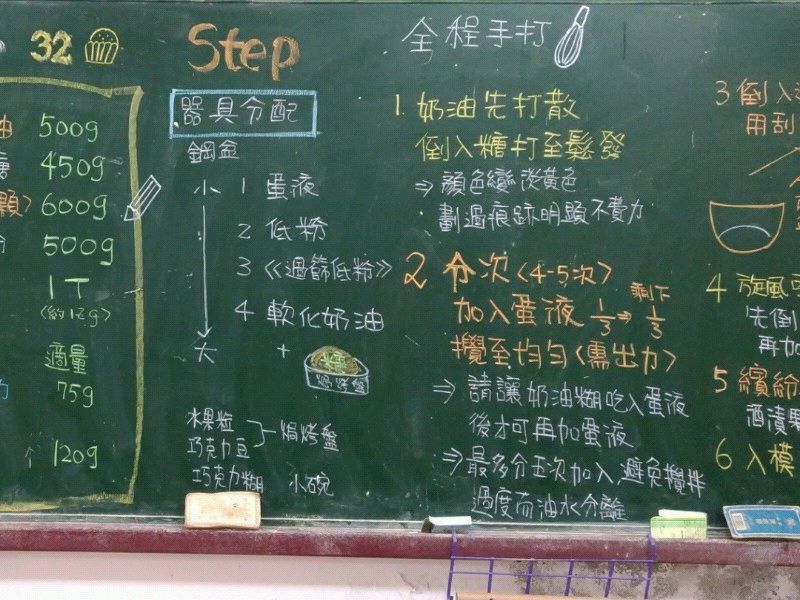 32
油 500g
糖 450g
顆〉 600g
粉 500g
1T
〈約12g〉
適量
75g
↑ 120g
Step
器具分配
鋼盆
小 1 蛋液
2 低粉
3 《過篩低粉》
4 軟化奶油
大 +
糖
焗烤盤
水果粒
巧克力豆
焗烤盤
巧克力糊 小碗
全程手打
1. 奶油先打散
倒入糖打至鬆發
⇒ 顏色變淡黃色
· 劃過痕跡明顯不費力
2 分次〈4-5次〉
加入蛋液 1/3 → 剩下 1/3
攪至均勻〈需出力〉
⇒ 請讓奶油糊吃入蛋液
後才可再加蛋液
⇒ 最多分五次加入,避免攪拌
過度而油水分離
3 倒入
用刮
4 旋風
先倒
再加
5 繽紛
酒漬果
6 入模